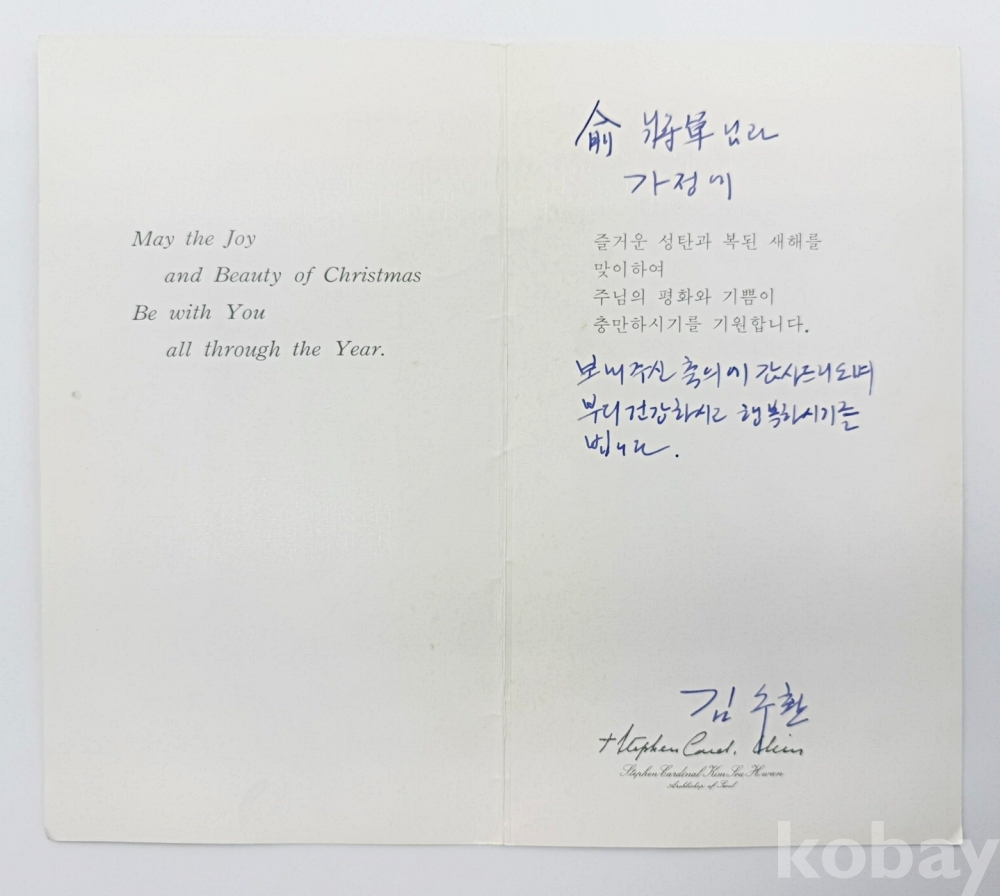 May the Joy
and Beauty of Christmas
Be with You
all through the Year.
兪 將軍님과
가정에
즐거운 성탄과 복된 새해를
맞이하여
주님의 평화와 기쁨이
충만하시기를 기원합니다.
보내주신 축의에 감사드리오며
부디 건강하시고 행복하시기를
빕니다.
김수환
+Stephen Card. Kim
Stephen Cardinal Kim Sou Hwan
Archbishop of Seoul
kobay